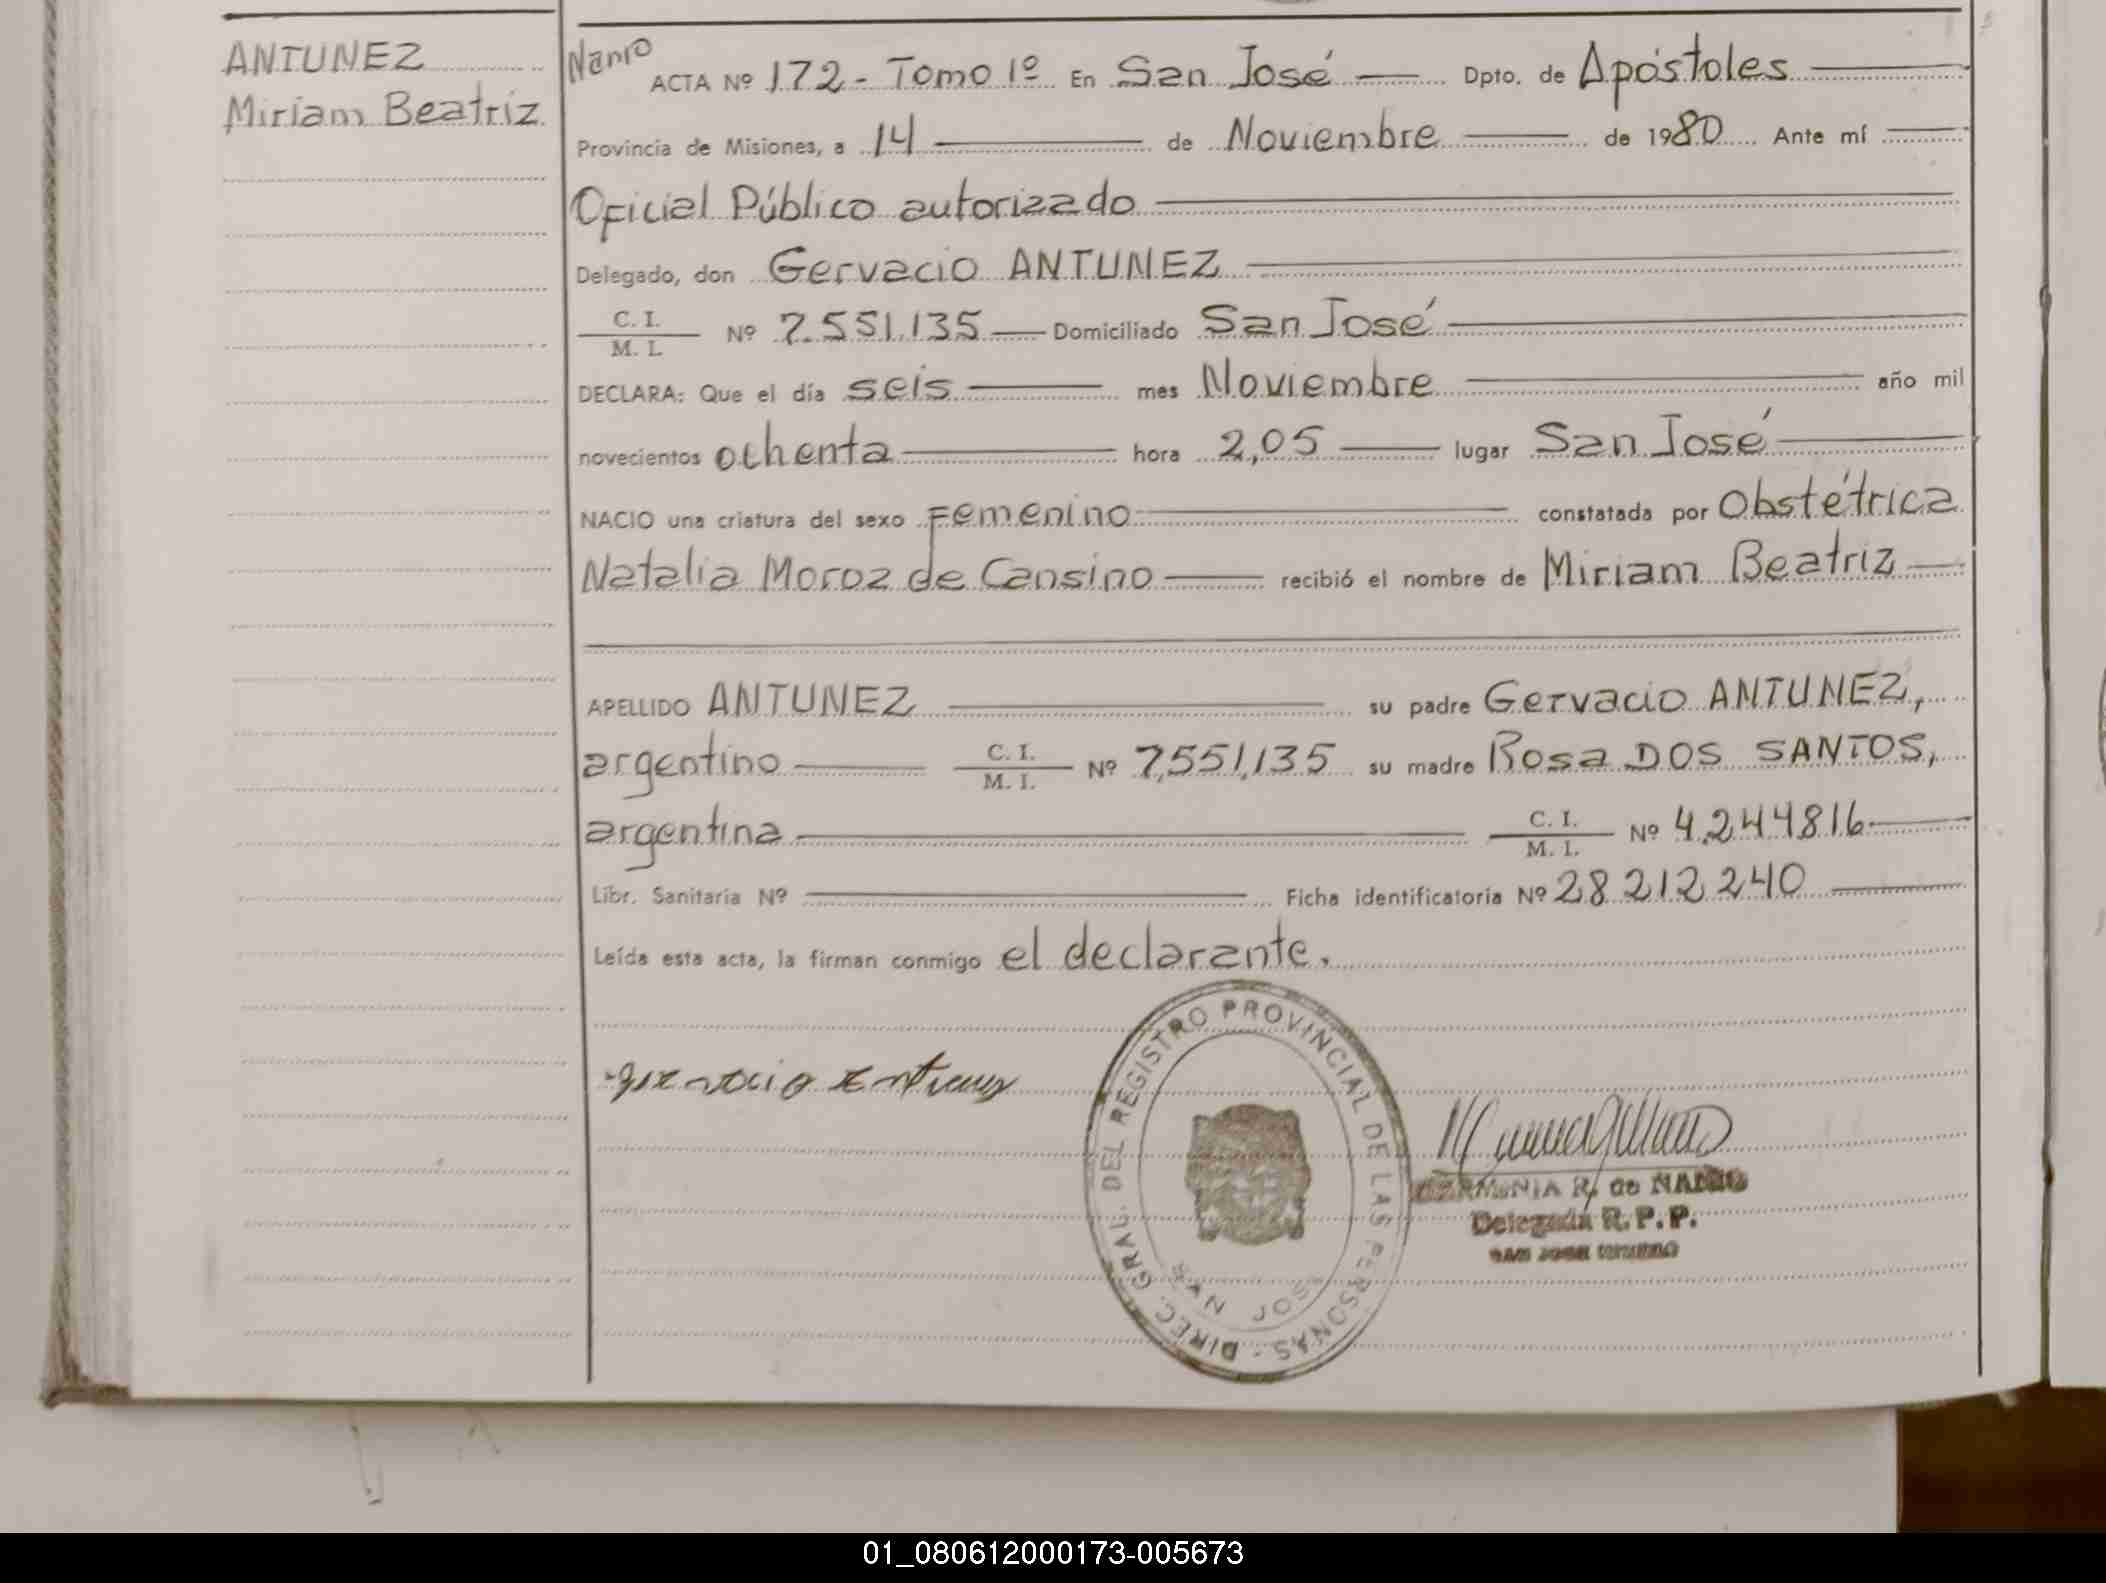 ANTUNEZ
Miriam Beatriz
Namo
ACTA Nº 172 - Tomo 1º En San José Dpto. de Apóstoles
Provincia de Misiones, a 14 de Noviembre de 1980 Ante mí
Oficial Público autorizado
Delegado, don Gervacio ANTUNEZ
C. I. / M. I. Nº 7.551.135 Domiciliado San José
DECLARA: Que el día seis mes Noviembre año mil
novecientos ochenta hora 2,05 lugar San José
NACIO una criatura del sexo Femenino constatada por Obstétrica
Natalia Moroz de Cansino recibió el nombre de Miriam Beatriz
APELLIDO ANTUNEZ su padre Gervacio ANTUNEZ,
argentino C. I. / M. I. Nº 7,551,135 su madre Rosa DOS SANTOS,
argentina C. I. / M. I. Nº 4.244816
Libr. Sanitaria Nº Ficha identificatoria Nº 28212240
Leída esta acta, la firman conmigo el declarante.
DIREC. GRAL. DEL REGISTRO PROVINCIAL DE LAS PERSONAS -
SAN JOSE
R. de
Delegada R.P.P.
SAN JOSE
01_080612000173-005673